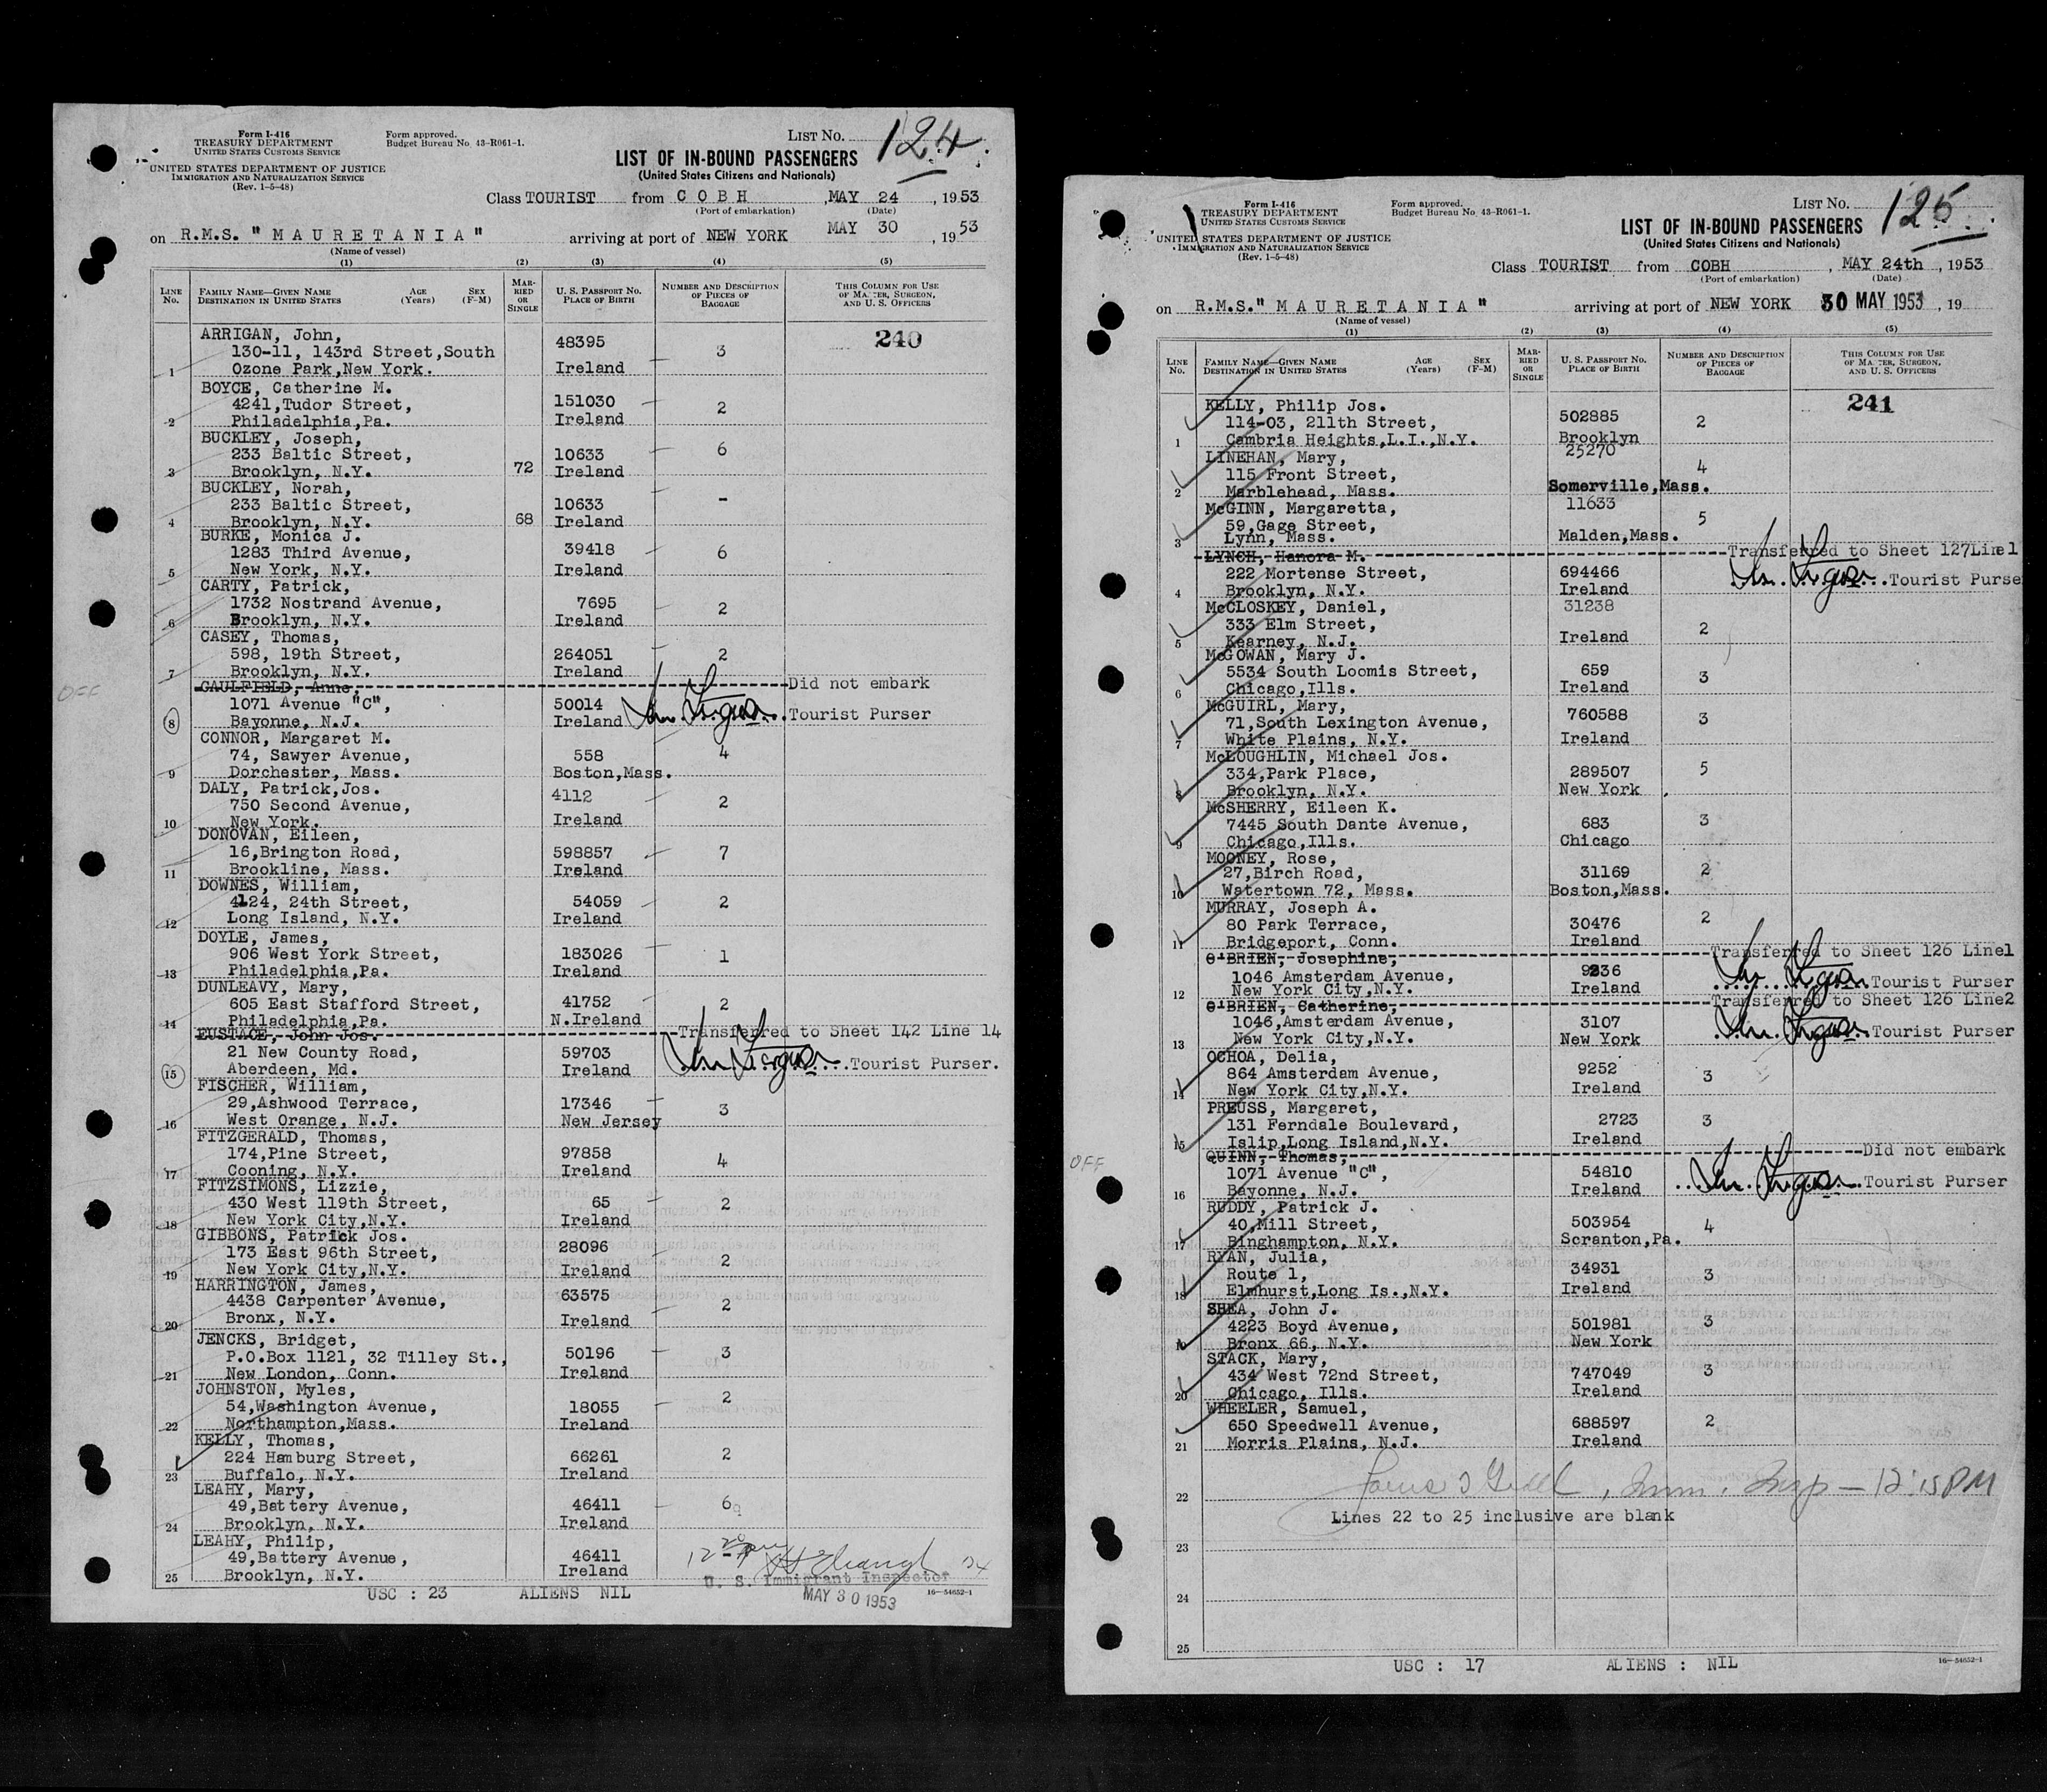 Form I-416
TREASURY DEPARTMENT
UNITED STATES CUSTOMS SERVICE
Form approved.
Budget Bureau No. 43-R061-1.
LIST NO. 124
UNITED STATES DEPARTMENT OF JUSTICE
IMMIGRATION AND NATURALIZATION SERVICE
(Rev. 1-5-48)
LIST OF IN-BOUND PASSENGERS
(United States Citizens and Nationals)
Class TOURIST from C O B H , MAY 24 , 1953
(Port of embarkation) (Date)
on R.M.S. " M A U R E T A N I A " arriving at port of NEW YORK MAY 30 , 1953
(Name of vessel)
(1) (2) (3) (4) (5)
LINE No. FAMILY NAME—GIVEN NAME DESTINATION IN UNITED STATES AGE (Years) SEX (F-M) MARRIED OR SINGLE U. S. PASSPORT NO. PLACE OF BIRTH NUMBER AND DESCRIPTION OF PIECES OF BAGGAGE THIS COLUMN FOR USE OF MASTER, SURGEON, AND U. S. OFFICERS
240
ARRIGAN, John, 48395
130-11, 143rd Street,South 3
1 Ozone Park,New York. Ireland
BOYCE, Catherine M.
4241,Tudor Street, 151030 2
2 Philadelphia,Pa. Ireland
BUCKLEY, Joseph,
233 Baltic Street, 10633 6
3 Brooklyn, N.Y. 72 Ireland
BUCKLEY, Norah,
233 Baltic Street, 10633 -
4 Brooklyn, N.Y. 68 Ireland
BURKE, Monica J.
1283 Third Avenue, 39418 6
5 New York, N.Y. Ireland
CARTY, Patrick,
1732 Nostrand Avenue, 7695 2
6 Brooklyn, N.Y. Ireland
CASEY, Thomas,
598, 19th Street, 264051 2
7 Brooklyn, N.Y. Ireland
OFF CAULFIELD, Anne, Did not embark
1071 Avenue "C", 50014
8 Bayonne, N.J. Ireland Tourist Purser
CONNOR, Margaret M.
74, Sawyer Avenue, 558 4
9 Dorchester, Mass. Boston,Mass.
DALY, Patrick,Jos. 4112
750 Second Avenue, 2
10 New York. Ireland
DONOVAN, Eileen,
16,Brington Road, 598857 7
11 Brookline, Mass. Ireland
DOWNES, William,
4124, 24th Street, 54059 2
12 Long Island, N.Y. Ireland
DOYLE, James,
906 West York Street, 183026 1
13 Philadelphia,Pa. Ireland
DUNLEAVY, Mary,
605 East Stafford Street, 41752 2
14 Philadelphia,Pa. N.Ireland
EUSTACE, John Jos. Transferred to Sheet 142 Line 14
21 New County Road, 59703
15 Aberdeen, Md. Ireland Tourist Purser.
FISCHER, William,
29,Ashwood Terrace, 17346 3
16 West Orange, N.J. New Jersey
FITZGERALD, Thomas,
174,Pine Street, 97858 4
17 Cooning, N.Y. Ireland
FITZSIMONS, Lizzie,
430 West 119th Street, 65 2
18 New York City,N.Y. Ireland
GIBBONS, Patrick Jos.
173 East 96th Street, 28096 2
19 New York City,N.Y. Ireland
HARRINGTON, James,
4438 Carpenter Avenue, 63575 2
20 Bronx, N.Y. Ireland
JENCKS, Bridget,
P.O.Box 1121, 32 Tilley St., 50196 3
21 New London, Conn. Ireland
JOHNSTON, Myles,
54,Washington Avenue, 18055 2
22 Northampton,Mass. Ireland
KELLY, Thomas,
224 Hamburg Street, 66261 2
23 Buffalo, N.Y. Ireland
LEAHY, Mary,
49,Battery Avenue, 46411 6
24 Brooklyn, N.Y. Ireland
LEAHY, Philip,
49,Battery Avenue, 46411
25 Brooklyn, N.Y. Ireland
U. S. Immigrant Inspector
USC : 23 ALIENS NIL MAY 30 1953 16—54652-1
Form I-416
TREASURY DEPARTMENT
UNITED STATES CUSTOMS SERVICE
Form approved.
Budget Bureau No. 43-R061-1.
LIST NO. 125
UNITED STATES DEPARTMENT OF JUSTICE
IMMIGRATION AND NATURALIZATION SERVICE
(Rev. 1-5-48)
LIST OF IN-BOUND PASSENGERS
(United States Citizens and Nationals)
Class TOURIST from COBH , MAY 24th , 1953
(Port of embarkation) (Date)
on R.M.S." M A U R E T A N I A " arriving at port of NEW YORK 30 MAY 1953 , 19
(Name of vessel)
(1) (2) (3) (4) (5)
LINE No. FAMILY NAME—GIVEN NAME DESTINATION IN UNITED STATES AGE (Years) SEX (F-M) MARRIED OR SINGLE U. S. PASSPORT NO. PLACE OF BIRTH NUMBER AND DESCRIPTION OF PIECES OF BAGGAGE THIS COLUMN FOR USE OF MASTER, SURGEON, AND U. S. OFFICERS
241
KELLY, Philip Jos. 502885
114-03, 211th Street, 2
1 Cambria Heights,L.I.,N.Y. Brooklyn
LINEHAN, Mary, 25270
115 Front Street, 4
2 Marblehead, Mass. Somerville,Mass.
McGINN, Margaretta, 11633
59,Gage Street, 5
3 Lynn, Mass. Malden,Mass.
LYNCH, Hanora M. Transferred to Sheet 127Line1
222 Mortense Street, 694466 Tourist Purser
4 Brooklyn, N.Y. Ireland
McCLOSKEY, Daniel, 31238
333 Elm Street, 2
5 Kearney, N.J. Ireland
McGOWAN, Mary J.
5534 South Loomis Street, 659 3
6 Chicago,Ills. Ireland
McGUIRL, Mary,
71,South Lexington Avenue, 760588 3
7 White Plains, N.Y. Ireland
McLOUGHLIN, Michael Jos.
334,Park Place, 289507 5
8 Brooklyn, N.Y. New York
McSHERRY, Eileen K.
7445 South Dante Avenue, 683 3
9 Chicago,Ills. Chicago
MOONEY, Rose,
27,Birch Road, 31169 2
10 Watertown 72, Mass. Boston,Mass.
MURRAY, Joseph A.
80 Park Terrace, 30476 2
11 Bridgeport, Conn. Ireland
O'BRIEN, Josephine, Transferred to Sheet 126 Line1
1046 Amsterdam Avenue, 9236
12 New York City,N.Y. Ireland Tourist Purser
O'BRIEN, Catherine, Transferred to Sheet 126 Line2
1046,Amsterdam Avenue, 3107
13 New York City,N.Y. New York Tourist Purser
OCHOA, Delia,
864 Amsterdam Avenue, 9252 3
14 New York City,N.Y. Ireland
PREUSS, Margaret,
131 Ferndale Boulevard, 2723 3
15 Islip,Long Island,N.Y. Ireland
OFF QUINN, Thomas, Did not embark
1071 Avenue "C", 54810
16 Bayonne, N.J. Ireland Tourist Purser
RUDDY, Patrick J.
40,Mill Street, 503954 4
17 Binghampton, N.Y. Scranton,Pa.
RYAN, Julia,
Route 1, 34931 3
18 Elmhurst,Long Is.,N.Y. Ireland
SHEA, John J.
4223 Boyd Avenue, 501981 3
19 Bronx 66, N.Y. New York
STACK, Mary,
434 West 72nd Street, 747049 3
20 Chicago, Ills. Ireland
WHEELER, Samuel,
650 Speedwell Avenue, 688597 2
21 Morris Plains, N.J. Ireland
22 Imm. Insp — 12:15 PM
Lines 22 to 25 inclusive are blank
23
24
25
USC : 17 ALIENS : NIL 16—54652-1